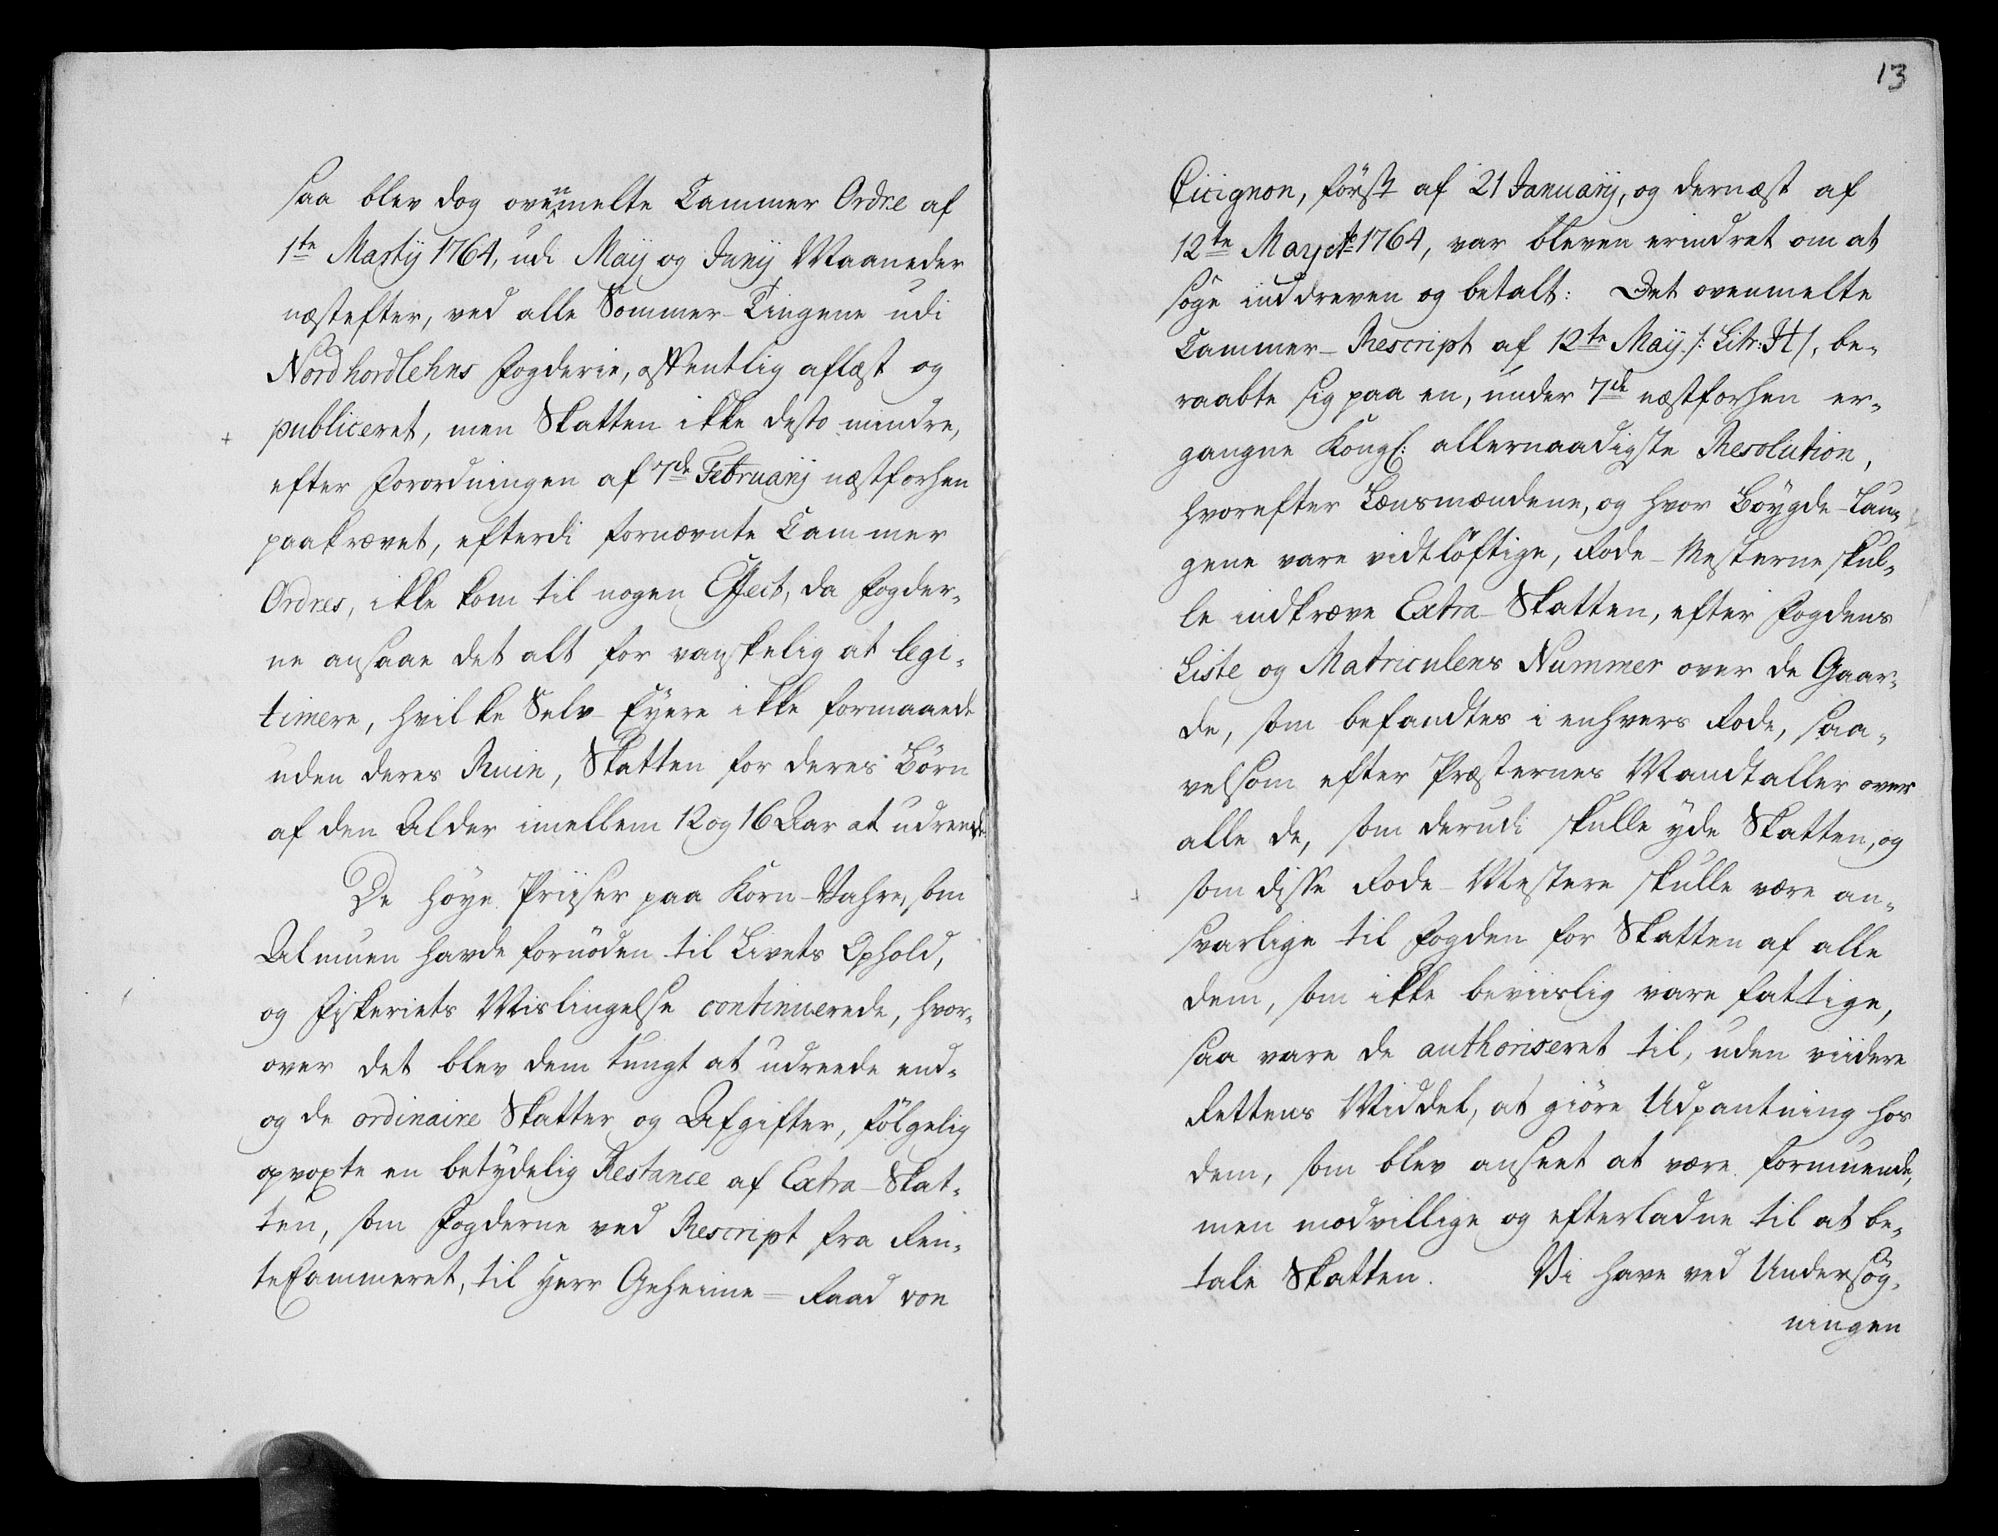 saa blev dog ovenmelte Cammer Ordre af
1te Martij 1764, udi Maij og Junij Maaneder
næstefter, ved alle Sommer-Tingene udi
Nordhordlehns Fogderie, offentlig aflæst og
publiceret, men Skatten ikke desto mindre,
efter Forordningen af 7de Februarij næstforhen
paakrævet, efterdi fornævnte Cammer
Ordres, ikke kom til nogen Effect, da Fogder-
ne ansaae det alt for vanskelig at legi-
timere, hvilke Selv-Eyere ikke formaaede
uden deres Ruin, Skatten for deres Börn
af den Alder imellem 12 og 16 Aar at udreede.
De höye Priiser paa Korn-Vahre, som
Almuen havde fornöden til Livets Ophold,
og Fiskeriets Mislingelse continuerede, hvor-
over det blev dem tungt at udreede end-
og de ordinaire Skatter og Afgifter, fölgelig
opvoxte en betydelig Restance af Extra-Skat-
ten, som Fogderne ved Rescript fra Ren-
teCammeret, til Herr Geheime-Raad von
13
Cicignon, först af 21 Januarij, og dernæst af
12te May 1764, var bleven erindret om at
söge inddreven og betalt: Det ovenmelte
Cammer-Rescript af 12te Maij /: Litr: H /, be-
raabte sig paa en, under 7de næstforhen er-
gangne Kongl: allernaadigste Resolution,
hvorefter Lænsmændene, og hvor Böygde-Lau-
gene vare vidtlöftige, Rode-Mesterne skul-
le indkræve Extra-Skatten, efter Fogdens
Liste og Matriculens Nummer over de Gaar-
de, som befandtes i enhvers Rode, saa-
velsom efter Præsternes Mandtaller over
alle de, som derudi skulle yde Skatten, og
som disse Rode-Mestere skulle være an-
svarlige til Fogden for Skatten af alle
dem, som ikke beviislig vare fattige,
saa vare de authoriseret til, uden viidere
Rettens Middel, at giöre Udpantning hos
dem, som blev anseet at være formuende,
men modvillige og efterladne til at be-
tale Skatten. Vi have ved Undersög-
ningen